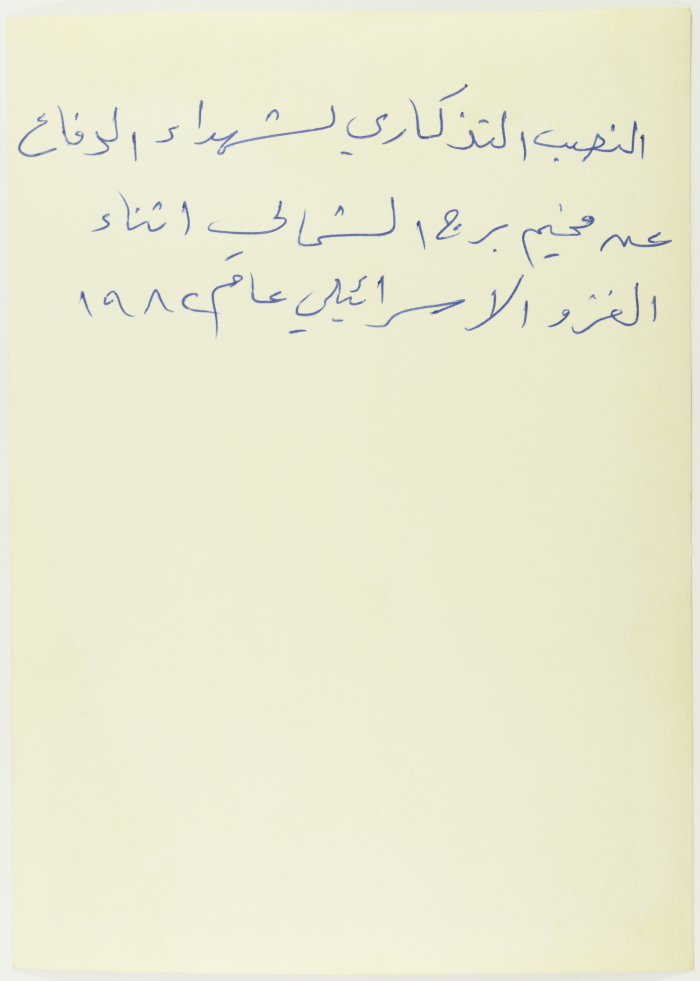 النصب التذكاري لشهداء الدفاع
عن مخيم برج الشمالي اثناء
الغزو الاسرائيلي عام ١٩٨٢